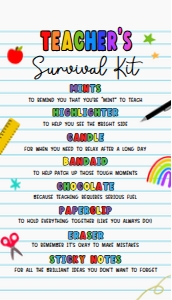 TEACHER'S
Survival Kit
MINTS
TO REMIND YOU THAT YOU'RE "MINT" TO TEACH
HIGHLIGHTER
TO HELP YOU SEE THE BRIGHT SIDE
CANDLE
FOR WHEN YOU NEED TO RELAX AFTER A LONG DAY
BANDAID
TO HELP PATCH UP THOSE TOUGH MOMENTS
CHOCOLATE
BECAUSE TEACHING REQUIRES SERIOUS FUEL
PAPERCLIP
TO HOLD EVERYTHING TOGETHER (LIKE YOU ALWAYS DO!)
ERASER
TO REMEMBER IT'S OKAY TO MAKE MISTAKES
STICKY NOTES
FOR ALL THE BRILLIANT IDEAS YOU DON'T WANT TO FORGET